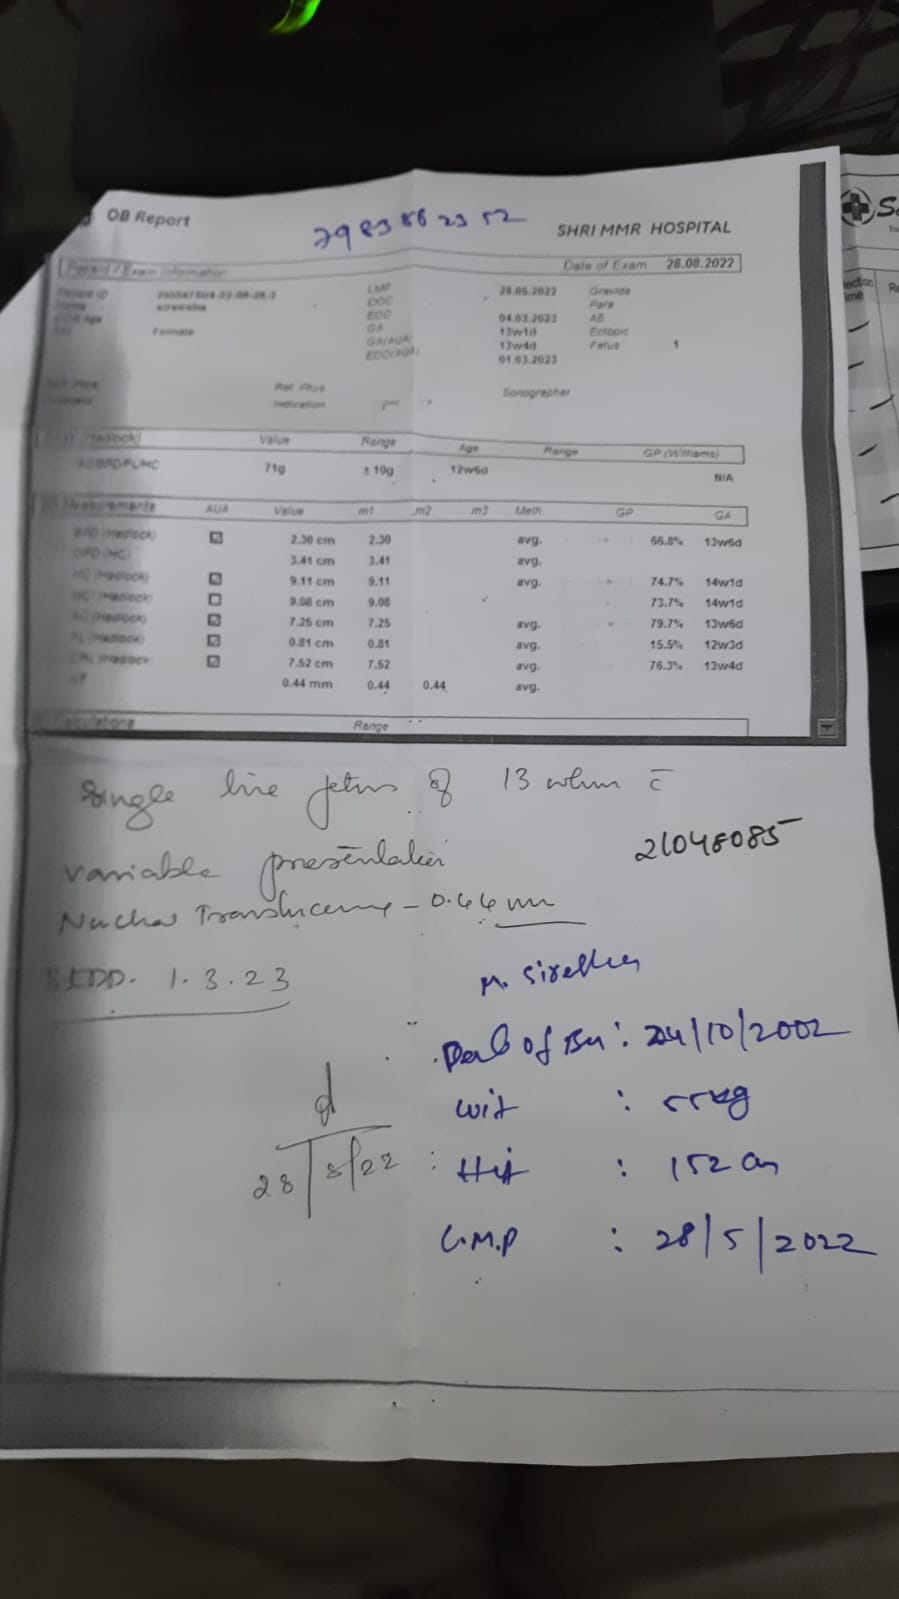 OB Report
7983862352
SHRI MMR HOSPITAL
Patient / Exam Information
Date of Exam 28.08.2022
Patient ID
LMP 28.05.2022 Gravida
DOC Para
EDD 04.03.2023 AB
Female GA 13w1d Ectopic
GA(AUA) 13w4d Fetus 1
EDD(AUA) 01.03.2023
Ref Phys Sonographer
Indication
(Hadlock) Value Range Age Range GP (Williams)
AC/BPD/FL/HC 71g ± 10g 12w6d N/A
Measurements AUA Value m1 m2 m3 Meth GP GA
BPD (Hadlock) 2.30 cm 2.30 avg. 66.8% 13w6d
OFD (HC) 3.41 cm 3.41 avg.
HC (Hadlock) 9.11 cm 9.11 avg. 74.7% 14w1d
HC* (Hadlock) 9.08 cm 9.08 73.7% 14w1d
AC (Hadlock) 7.25 cm 7.25 avg. 79.7% 13w6d
FL (Hadlock) 0.81 cm 0.81 avg. 15.5% 12w3d
CRL (Hadlock) 7.52 cm 7.52 avg. 76.3% 13w4d
NT 0.44 mm 0.44 0.44 avg.
Calculations Range
Single live fetus of 13 c̄
variable presentation
21048085
Nuchal Translucency - 0.44 mm
EDD. 1.3.23
M.
of : 24/10/2002
: 55kg
: 152 cm
28/8/22
L.M.P : 28/5/2022